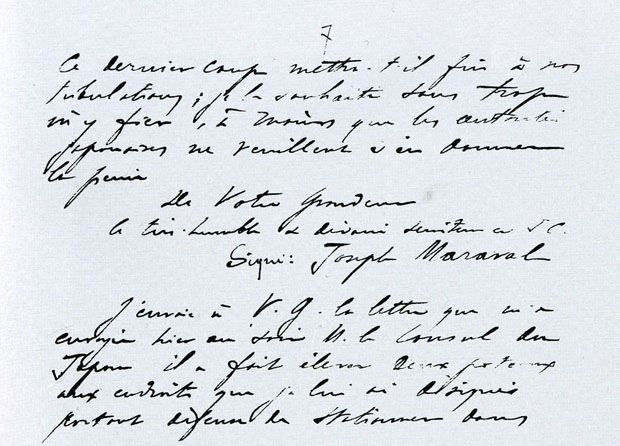 7
Ce dernier coup mettra-t-il fin à nos
tribulations; je le souhaite sans trop
m'y fier, à moins que les autorités
japonaises ne veuillent s'en donner
la peine
De Votre Grandeur
le très humble & dévoué serviteur en J.C.
Signé: Joseph Maraval
J'envoie à V. G. la lettre que m'a
envoyée hier au soir M. le Consul du
Japon il a fait élever deux poteaux
aux endroits que je lui ai désignés
portant défense de stationner dans